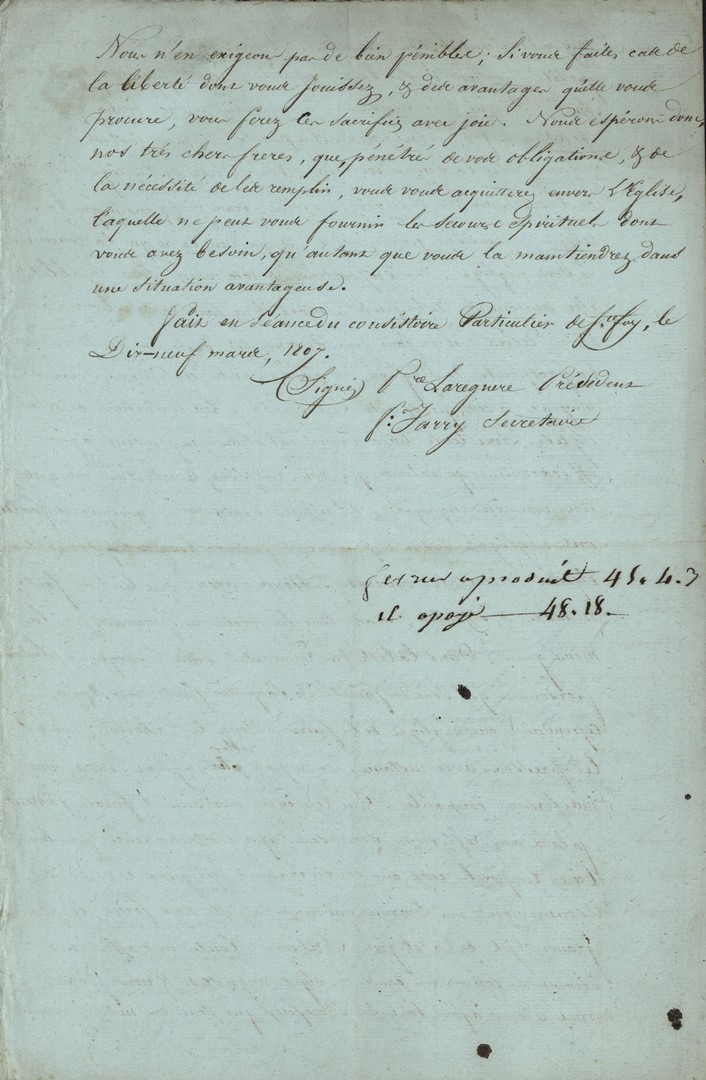 Nous n'en exigeons pas de bien pénibles; Si vous faites cas de
la liberté dont vous Jouissez, & des avantages qu'elle vous
procure, vous ferez ces sacrifices avec joie. Nous espérons donc,
nos très chers freres, que, pénétrés de vos obligations, & de
la nécessité de les remplir, vous vous acquitterez envers L'Eglise,
Laquelle ne peut vous fournir les Secours Spirituels dont
vous avez besoin, qu'autant que vous la maintiendrez dans
une Situation avantageuse.
Fait en Séance du consistoire Particulier de Ste foy, le
Dix-neuf mars, 1807.
(Signé) Laregnere Président
Jarry Secretaire
a produit 45. 4. 3
il a payé — 48. 18.